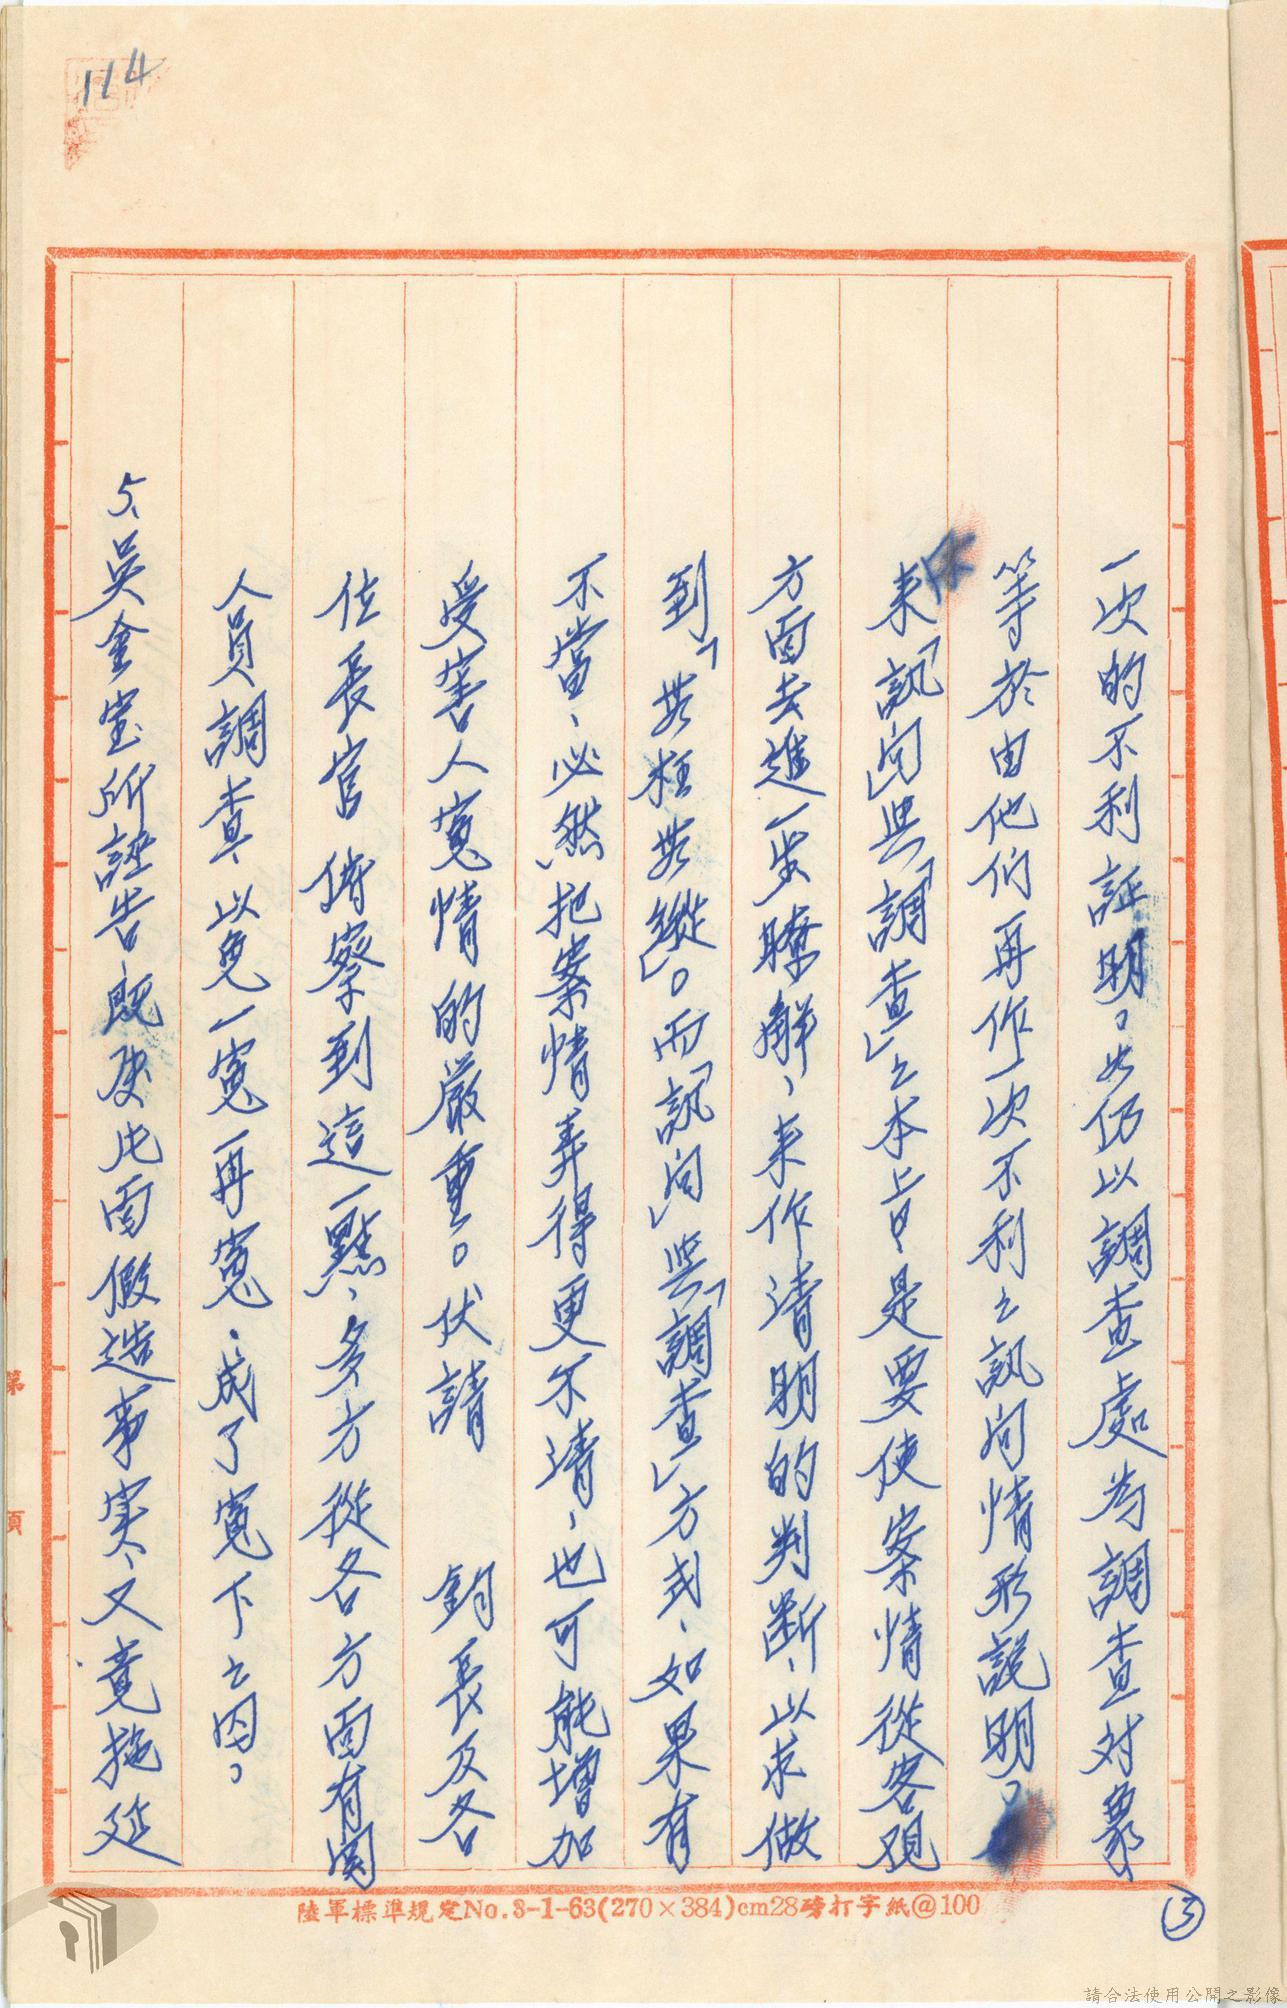 114
一次的不利証明。如仍以調查處為調查対象
等於由他们再作一次不利之訊问情形說明。
来「訊问」与「調查」之本旨，是要使案情從客观
方面去進一步瞭解、来作清明的判断，以求做
到「無枉無縱」。而「訊问」与「調查」方式，如果有
不當，必然把案情弄得更不清，也可能增加
受害人寃情的嚴重。伏請　鈞長及各
位長官 偵察到這一點，多方從各方面有関
人員調查，以免一寃再寃，成了寃下之囚。
5、吳金宝所誣告既使此面假造事実，又竟拖延
3
陸軍標準規定No.3-1-63(270×384)cm28磅打字紙@100
第 頁
請合法使用公開之影像